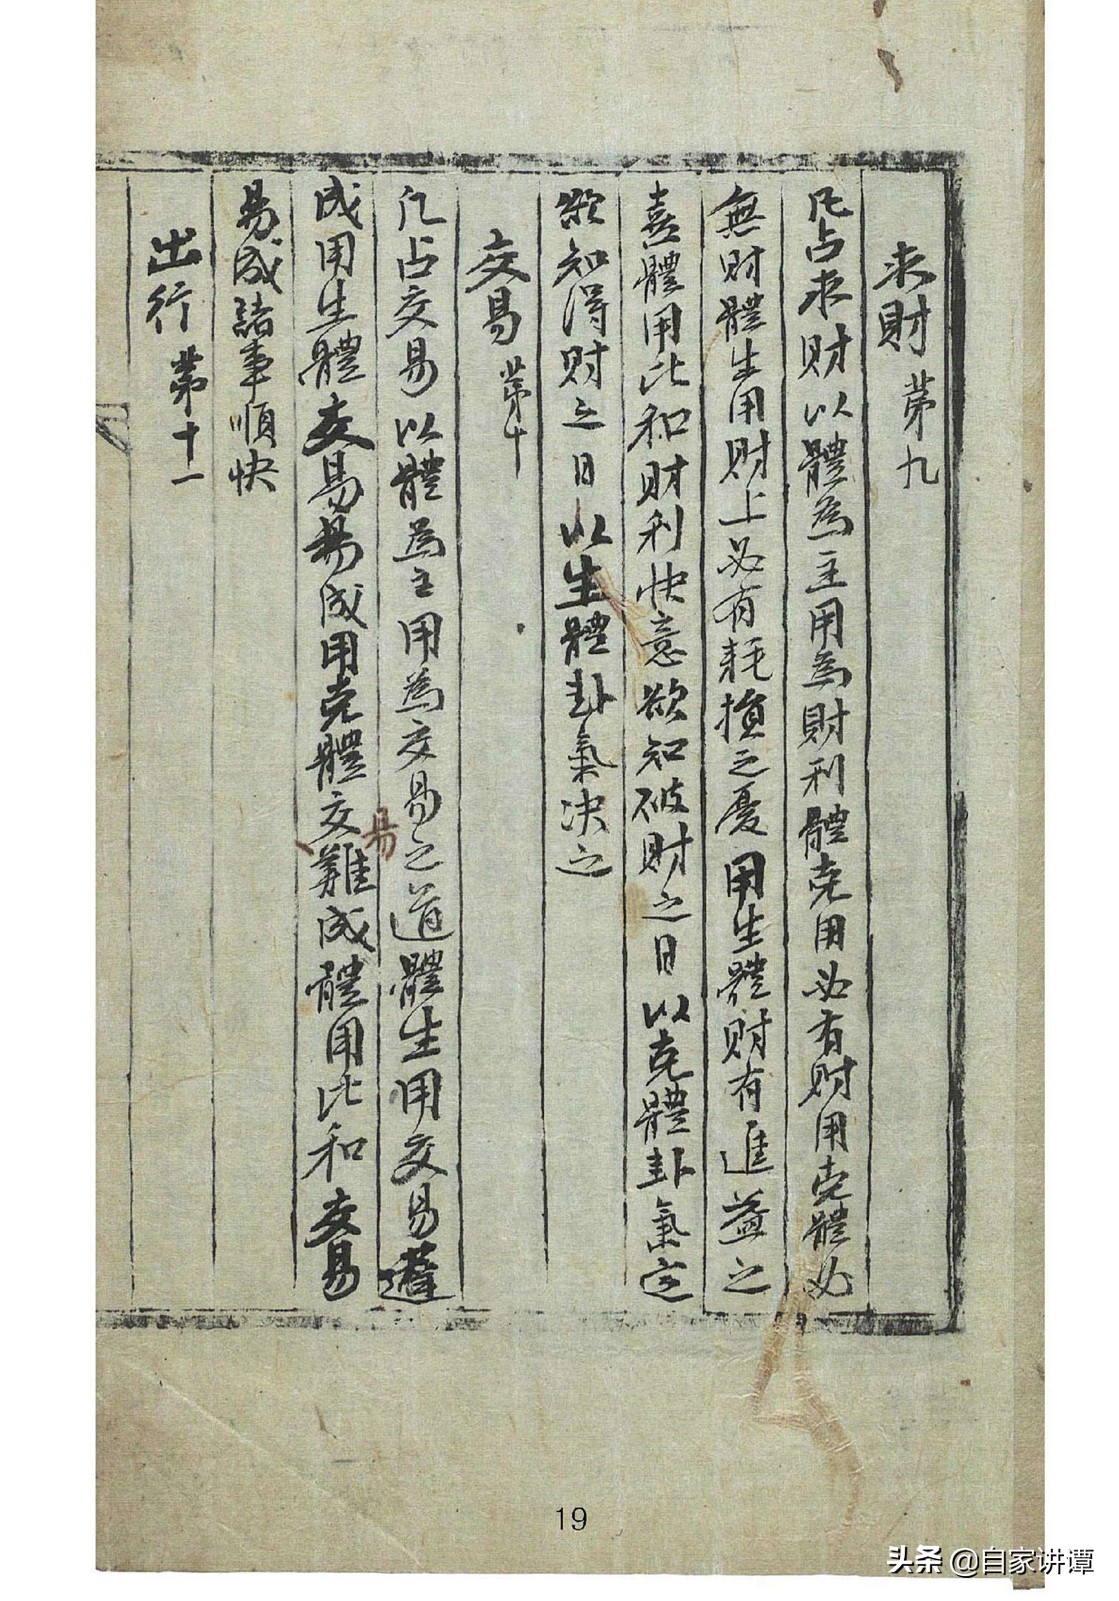 求財 第九
凡占求財以體為主用為財利體克用必有財用克體必
無財體生用財上必有耗損之憂用生體財有進益之
喜體用比和財利快意欲知破財之日以克體卦氣定
欲知得財之日以生體卦氣决之
交易 第十
凡占交易以體為主用為交易之道體生用交易遲
成用生體交易易成用克體交易難成體用比和交易
易成諸事順快
出行 第十一
19
头条 @自家讲谭